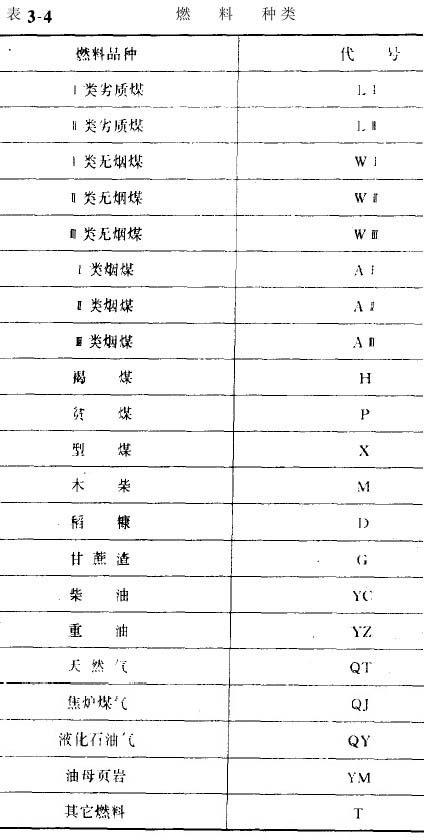 表 3-4 燃料种类
燃料品种 代号
Ⅰ类劣质煤 LⅠ
Ⅱ类劣质煤 LⅡ
Ⅰ类无烟煤 WⅠ
Ⅱ类无烟煤 WⅡ
Ⅲ类无烟煤 WⅢ
Ⅰ类烟煤 AⅠ
Ⅱ类烟煤 AⅡ
Ⅲ类烟煤 AⅢ
褐煤 H
贫煤 P
型煤 X
木柴 M
稻糠 D
甘蔗渣 G
柴油 YC
重油 YZ
天然气 QT
焦炉煤气 QJ
液化石油气 QY
油母页岩 YM
其它燃料 T